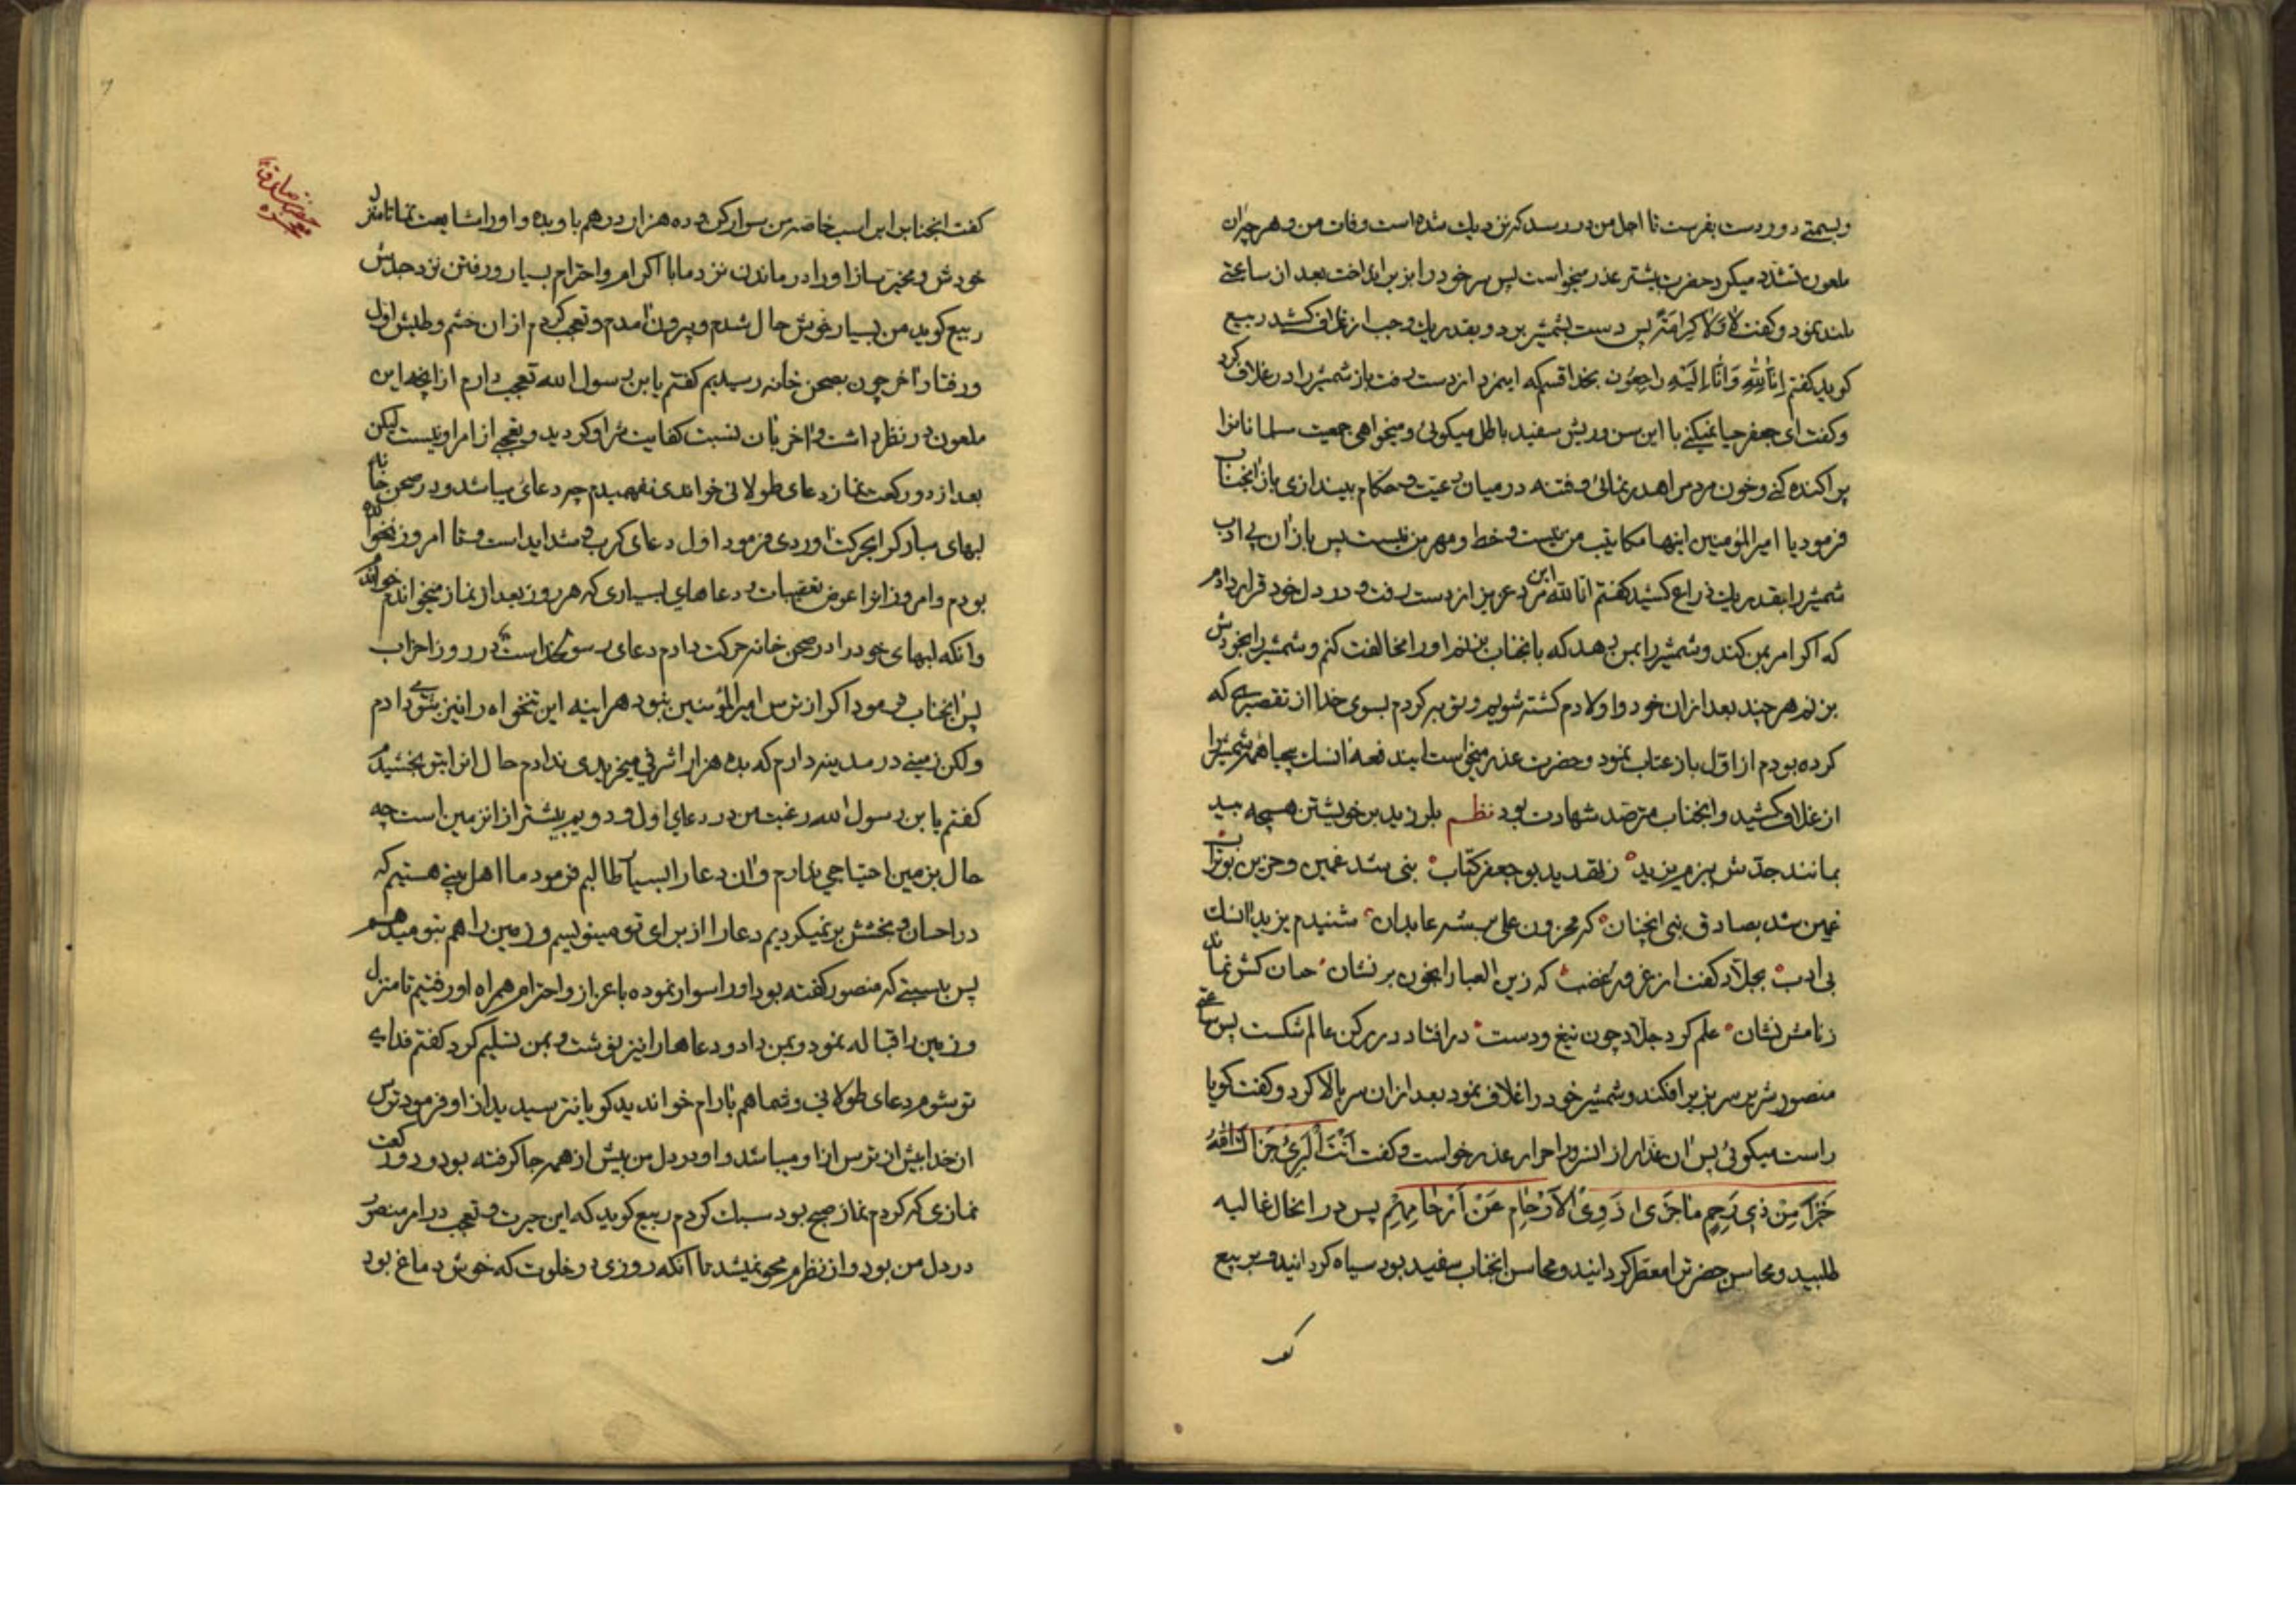 وبسمتی دوردست بفرست تا اجل من در رسد که نزدیک شده است وفات من و هر چه آن
ملعون تشدد میکرد حضرت بیشتر عذر میخواست پس سر خود را بزیر انداخت بعد از ساعتی
بلند نمود و گفت لَا وَلَا كِرَامَةَ پس دست بشمشیر برد و بقدر یک وجب از غلاف کشید ربیع
کوید گفتم اِنَّا لِلّٰهِ وَاِنَّا اِلَيْهِ رَاجِعُون بخدا قسم که این مرد از دست رفت باز شمشیر را در غلاف کرد
و گفت ای جعفر حیا نمیکنی با این سن و ریش سفید باطل میکوئی و میخواهی جمعیت مسلمانانرا
پراکنده کنی و خون مردم را هدر نمائی و فتنه در میان رعیت و حکام بیندازی باز آنجناب
فرمود یا امیرالمؤمنین اینها مکاتیب من نیست و خط و مهر من نیست پس باز آن بی ادب
شمشیر را بقدر یک ذراع کشید گفتم انا لله این مرد عزیز از دست رفت و در دل خود قرار دادم
که اگر امر بمن کند و شمشیر را بمن بدهد که بآنجناب بزنم او را مخالفت کنم و شمشیر را بخودش
بزنم هر چند بعد از آن خود و اولادم کشته شویم و توبه کردم بسوی خدا از تقصیری که
کرده بودم از اول باز عتاب نمود و حضرت عذر میخواست ایندفعه آن سک بیحیا همه شمشیر را
از غلاف کشید و آنجناب مترصد شهادت بود نظم بلرزید بر خویشتن همچه بید
بمانند جدش ببزم یزید ز تهدید بوجعفر کتاب بنی شد غمین و حزین بوتراب
غمین شد بصادق بنی آنچنان که محزون علی بسته عابدان شنیدم یزید آن سک
بی ادب بجلاد گفت از غرور غضب که زین العبا را بخون بر نشان
زنامش نشان علم کرد جلاد چون تیغ و دست در افتاد در رکن عالم شکست پس ساعتی
منصور شریر سر بزیر افکند و شمشیر خود در اغلاف نمود بعد از آن سر بالا کرد و گفت کویا
راست میکوئی پس آن غدار از آن سرور احرار عذر خواست و گفت اَنْتَ الْبَرِئُ جَزَاكَ اللّٰهُ
خَيْرَ مِنْ ذِي رَحِمٍ مَا جَزٰى ذَوِي الْاَرْحَامِ عَنْ اَرْحَامِهِمْ پس در آنحال غالیه
طلبید و محاسن حضرت را معطر کردانید و محاسن آنجناب سفید بود سیاه کردانید و بربیع
کفت
گفت آنجناب را بر این اسب خاصه من سوار کن و ده هزار درهم باو بده و او را مشایعت نما تا منزل
خودش و مخیر ساز او را در ماندن نزد ما با اکرام و احترام بسیار و رفتن نزد جدش
ربیع کوید من بسیار خوش حال شدم و بیرون آمدم و تعجب کردم از آن خشم و طلبش اول
و رفتار آخر چون بصحن خانه رسیدیم گفتم یابن رسول الله تعجب دارم از آنچه این
ملعون در نظر داشت و آخر بآن نسبت کفایت شر او کردید و تعجبی از امر او نیست لیکن
بعد از دو رکعت نماز دعای طولانی خواندی نفهمیدم چه دعائی میباشد و در صحن خانه
لبهای مبارک را بحرکت آوردی فرمود اول دعای کرب و شداید است و تا امروز نخوانده
بودم و امروز آنرا عوض تعقیبات و دعاهای بسیاری که هر روز بعد از نماز میخواندم خواندم
و آنکه لبهای خود را در صحن خانه حرکت دادم دعای رسول خداست در روز احزاب
پس آنجناب فرمود اگر از ترس امیرالمؤمنین نبود هر آینه این تنخواه را نیز بتو میدادم
ولکن زمینی در مدینه دارم که بده هزار اشرفی میخریدی ندادم حال آنرا بتو بخشیدم
گفتم یابن رسول الله رغبت من در دعای اول و دویم بیشتر از آن زمین است چه
حال بزمین احتیاجی ندارم و آن دعا را بسیار طالبم فرمود ما اهل بیتی هستیم که
در احسان و بخشش بر نمیکردیم دعا را از برای تو مینویسم و زمین را هم بتو میدهم
پس باسبی که منصور گفته بود او را سوار نموده با عزاز و احترام همراه او رفتیم تا منزل
و زمین را قباله نمود و بمن داد و دعاها را نیز نوشت و بمن تسلیم کرد گفتم فدای
تو شوم دعای طولانی و شما هم بآرام خواندید کویا نترسیدید از او فرمود ترس
از خدا بیش از ترس از او میباشد و او در دل من پیش از همه جا کرفته بود و دو رکعت
نمازی که کردم نماز صبح بود سبک کردم ربیع کوید که این حیرت و تعجب در امر منصور
در دل من بود و از نظرم محو نمیشد تا آنکه روزی در خلوت که خوش دماغ بود